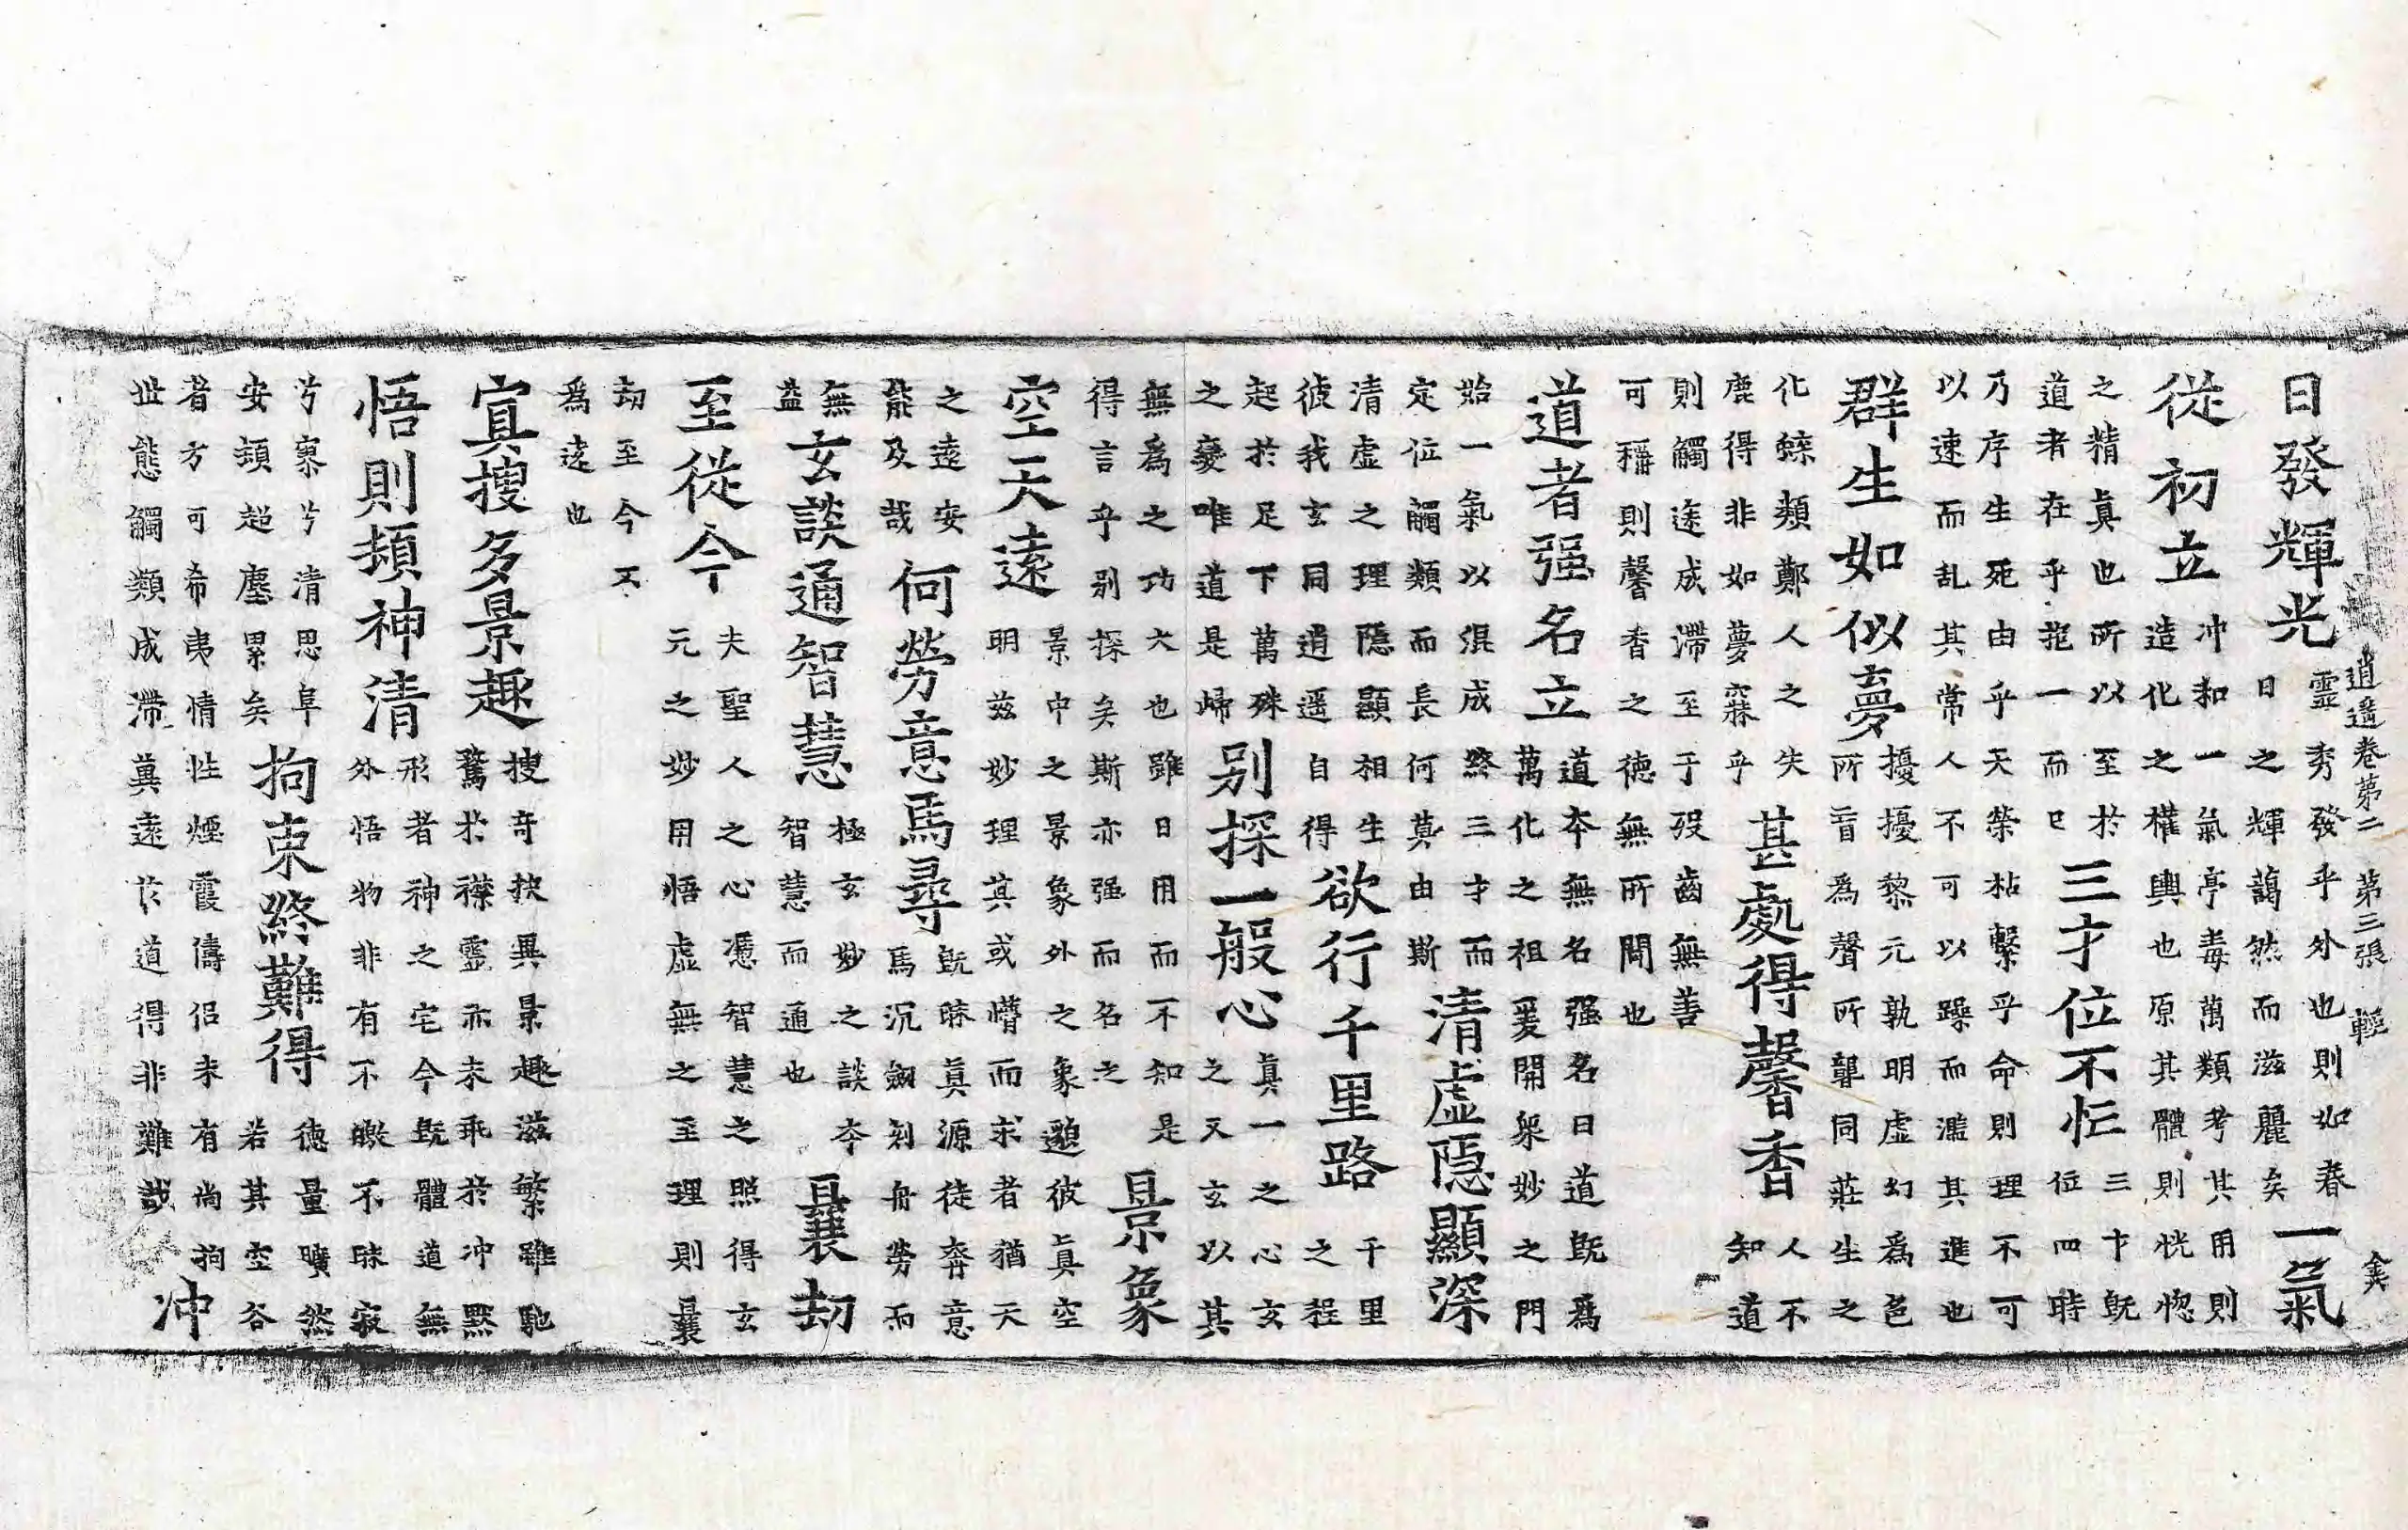 逍遥卷第二 第三張 輕
日發輝光
靈秀發乎外也則如春
日之輝藹然而滋麗矣
一氣
從初立
冲和一氣亭毒萬類考其用則
造化之權輿也原其體則恍惚
之精真也所以至於
道者在乎抱一而巳
三才位不忙
三才旣
位四時
乃序生死由乎天榮枯繫乎命則理不可
以速而乱其常人不可以躁而濫其進也
群生如似夢
擾擾黎元孰明虛幻爲色
所盲爲聲所聾同莊生之
化蝶類鄭人之失
鹿得非如夢寐乎
甚處得馨香
人不
知道
則觸途成滯至于歿齒無善
可稱則馨香之德無所聞也
道者强名立
道夲無名强名曰道旣爲
萬化之祖爰開衆妙之門
始一氣以混成終三才而
定位觸類而長何莫由斯
清虛隱顯深
清虛之理隱顯相生
彼我玄同逍遥自得
欲行千里路
千里
之程
起於足下萬殊
之變唯道是歸
别探一般心
真一之心玄
之又玄以其
無爲之功大也雖日用而不知是
得言乎别探矣斯亦强而名之
景象
空天遠
景中之景象外之象邈彼真空
明兹妙理其或懵而求者猶天
之遠安
能及哉
何勞意馬尋
旣昧真源徒奔意
馬沉劒刻舟勞而
無
益
玄談通智慧
極玄妙之談夲
智慧而通也
曩劫
至從今
夫聖人之心憑智慧之照得玄
元之妙用悟虛無之至理則曩
劫至今不
爲遠也
寘搜多景趣
搜奇抉異景趣滋繁雖馳
騖於襟靈亦未乖於冲默
悟則頓神清
形者神之宅今旣體道無
外悟物非有不皦不昧寂
兮寥兮清思阜
安頓超塵累矣
拘束終難得
德量曠然
若其空谷
者方可希夷情性煙霞儔侣未有尚拘
世態觸類成滯莫遠於道得非難哉
冲